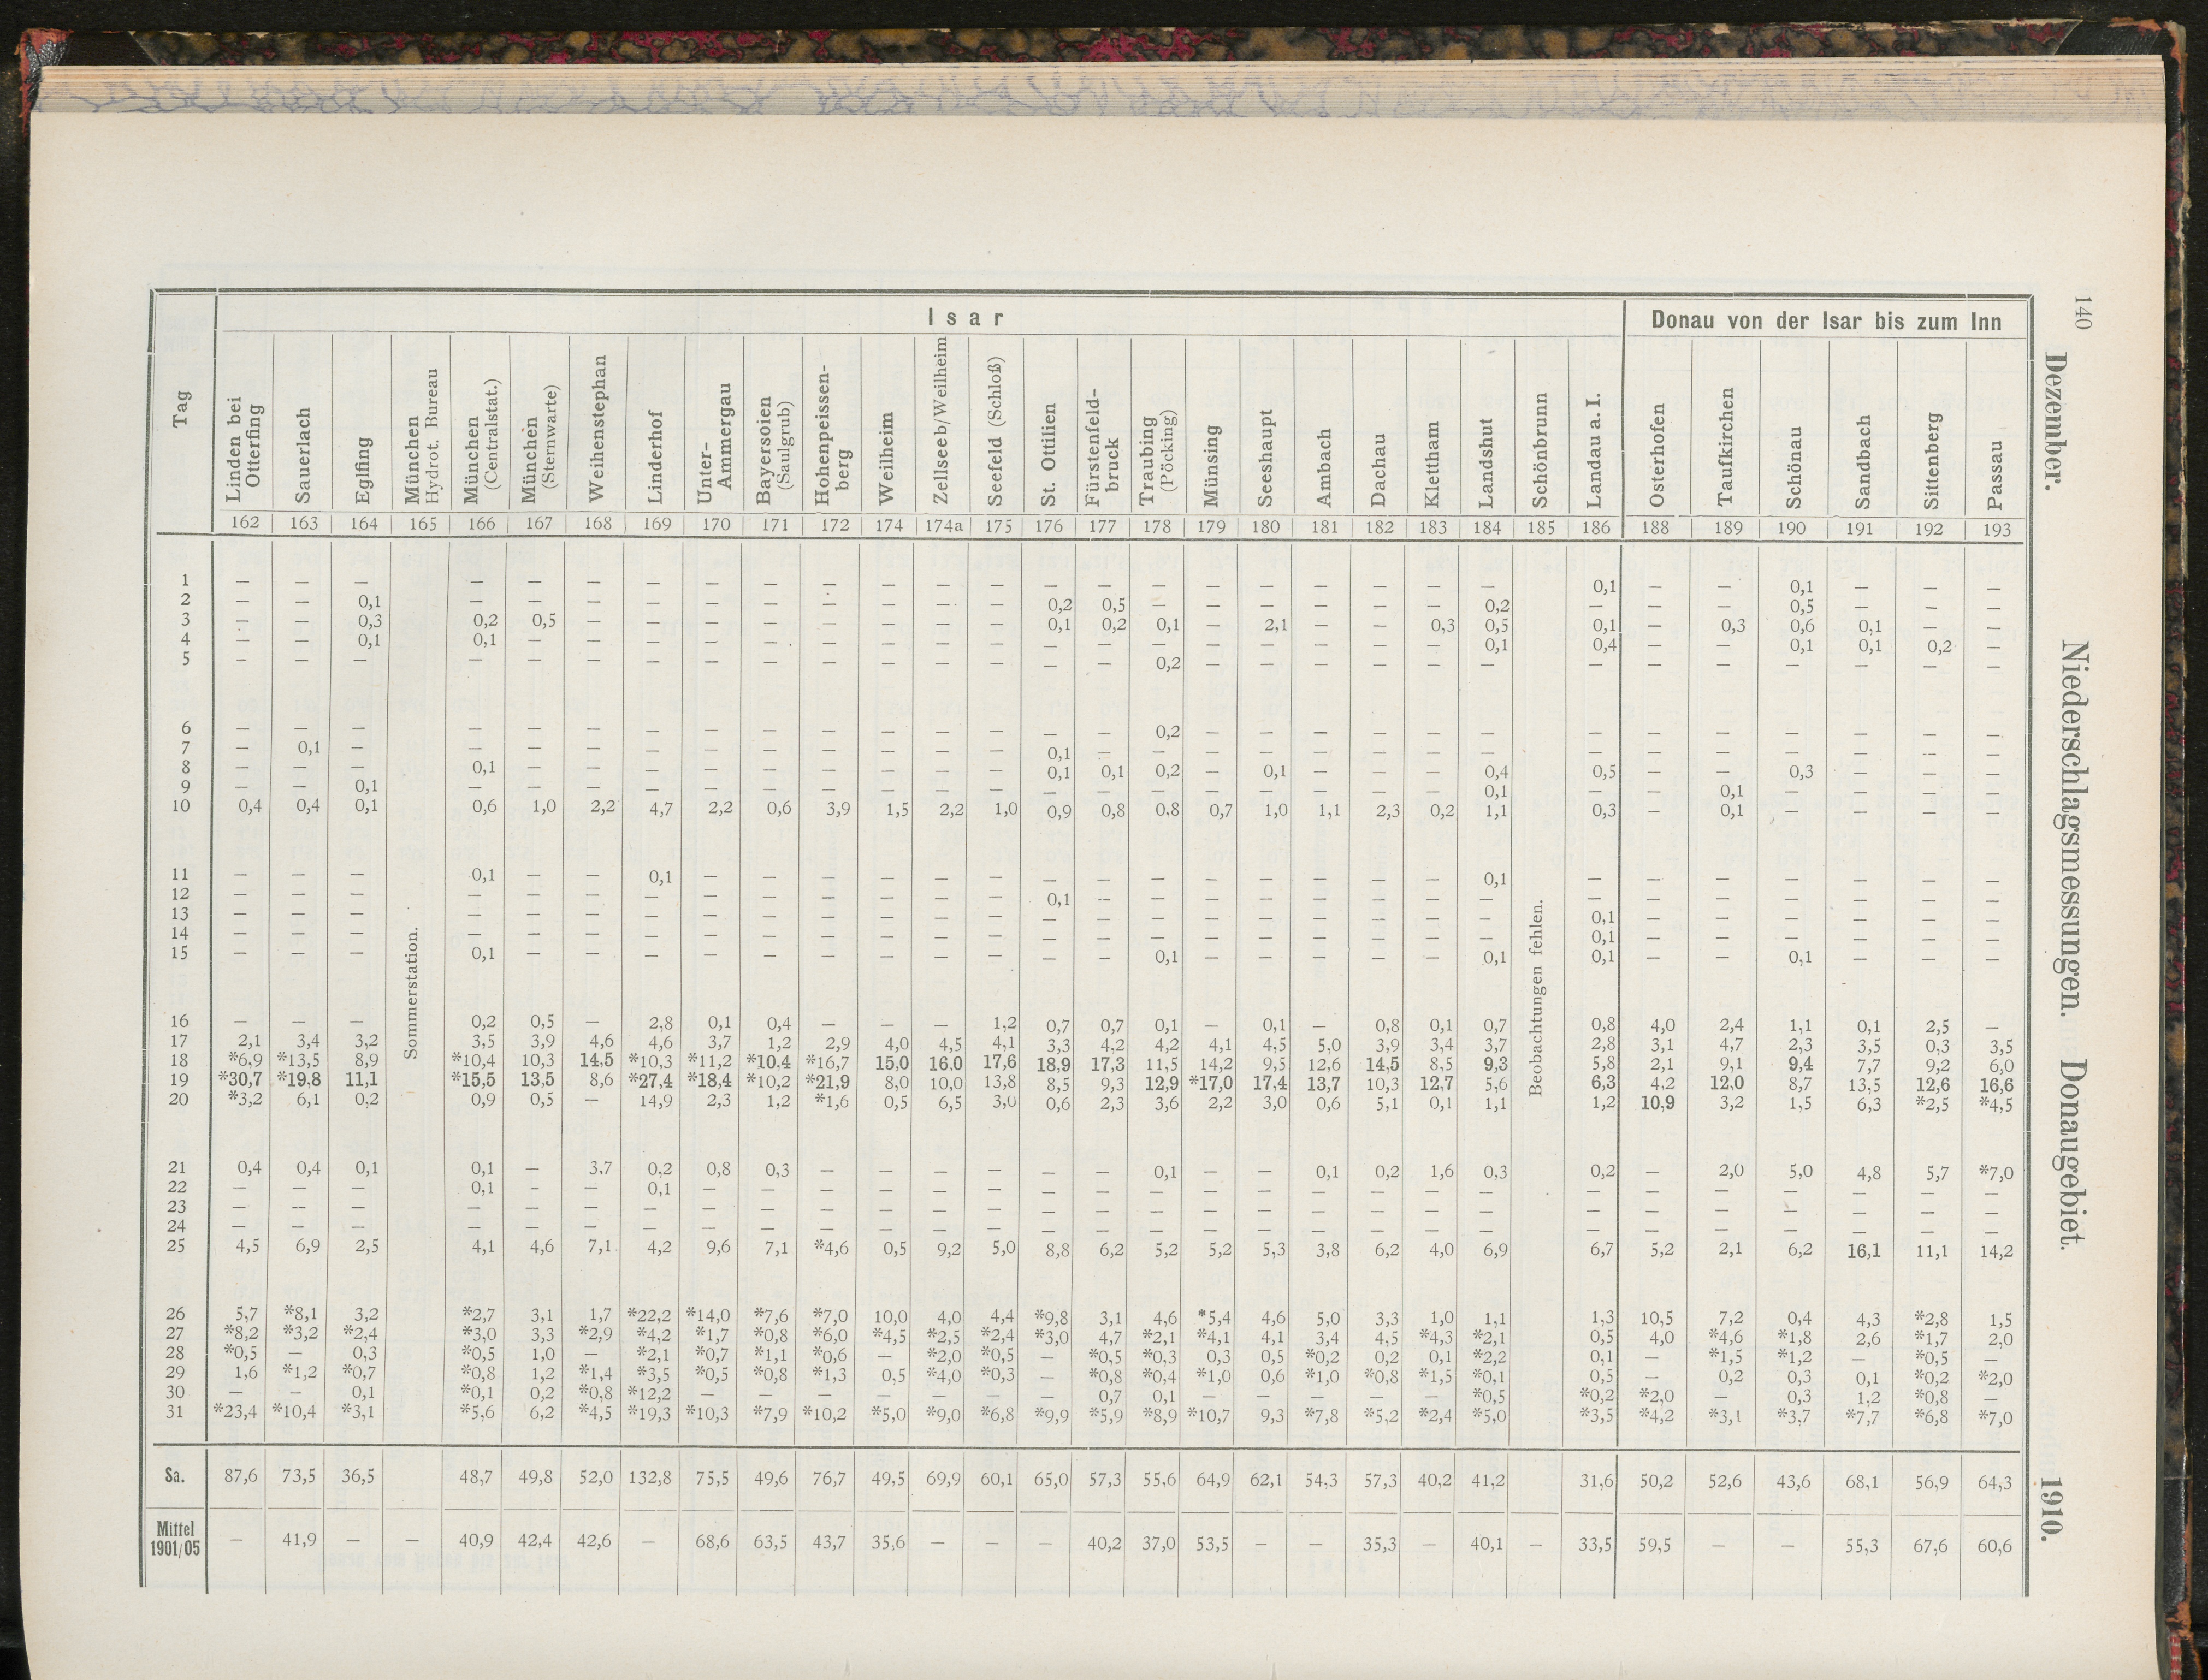 140
Dezember.
Niederschlagsmessungen. Donaugebiet.
1910.
Tag | Isar | Donau von der Isar bis zum Inn
Linden bei Otterfing | Sauerlach | Eglfing | München Hydrot. Bureau | München (Centralstat.) | München (Sternwarte) | Weihenstephan | Linderhof | Unter-Ammergau | Bayersoien (Saulgrub) | Hohenpeissen-berg | Weilheim | Zellseeb/Weilheim | Seefeld (Schloß) | St. Ottilien | Fürstenfeld-bruck | Traubing (Pöcking) | Münsing | Seeshaupt | Ambach | Dachau | Klettham | Landshut | Schönbrunn | Landau a. I. | Osterhofen | Taufkirchen | Schönau | Sandbach | Sittenberg | Passau
162 | 163 | 164 | 165 | 166 | 167 | 168 | 169 | 170 | 171 | 172 | 174 | 174a | 175 | 176 | 177 | 178 | 179 | 180 | 181 | 182 | 183 | 184 | 185 | 186 | 188 | 189 | 190 | 191 | 192 | 193
Sommerstation.
Beobachtungen fehlen.
1 — — — — — — — — — — — — — — — — — — — — — — 0,1 — — 0,1 — — —
2 — — 0,1 — — — — — — — — — — 0,2 0,5 — — — — — — 0,2 — — — 0,5 — — —
3 — — 0,3 0,2 0,5 — — — — — — — — 0,1 0,2 0,1 — 2,1 — — 0,3 0,5 0,1 — 0,3 0,6 0,1 — —
4 — — 0,1 0,1 — — — — — — — — — — — — — — — — — 0,1 0,4 — — 0,1 0,1 0,2 —
5 — — — — — — — — — — — — — — — 0,2 — — — — — — — — — — — — —
6 — — — — — — — — — — — — — — — 0,2 — — — — — — — — — — — — —
7 — 0,1 — — — — — — — — — — — 0,1 — — — — — — — — — — — — — — —
8 — — — 0,1 — — — — — — — — — 0,1 0,1 0,2 — 0,1 — — — 0,4 0,5 — — 0,3 — — —
9 — — 0,1 — — — — — — — — — — — — — — — — — — 0,1 — — 0,1 — — — —
10 0,4 0,4 0,1 0,6 1,0 2,2 4,7 2,2 0,6 3,9 1,5 2,2 1,0 0,9 0,8 0,8 0,7 1,0 1,1 2,3 0,2 1,1 0,3 — 0,1 — — — —
11 — — — 0,1 — — 0,1 — — — — — — — — — — — — — — 0,1 — — — — — — —
12 — — — — — — — — — — — — — 0,1 — — — — — — — — — — — — — — —
13 — — — — — — — — — — — — — — — — — — — — — — 0,1 — — — — — —
14 — — — — — — — — — — — — — — — — — — — — — — 0,1 — — — — — —
15 — — — 0,1 — — — — — — — — — — — 0,1 — — — — — 0,1 0,1 — — 0,1 — — —
16 — — — 0,2 0,5 — 2,8 0,1 0,4 — — — 1,2 0,7 0,7 0,1 — 0,1 — 0,8 0,1 0,7 0,8 4,0 2,4 1,1 0,1 2,5 —
17 2,1 3,4 3,2 3,5 3,9 4,6 4,6 3,7 1,2 2,9 4,0 4,5 4,1 3,3 4,2 4,2 4,1 4,5 5,0 3,9 3,4 3,7 2,8 3,1 4,7 2,3 3,5 0,3 3,5
18 *6,9 *13,5 8,9 *10,4 10,3 14,5 *10,3 *11,2 *10,4 *16,7 15,0 16,0 17,6 18,9 17,3 11,5 14,2 9,5 12,6 14,5 8,5 9,3 5,8 2,1 9,1 9,4 7,7 9,2 6,0
19 *30,7 *19,8 11,1 *15,5 13,5 8,6 *27,4 *18,4 *10,2 *21,9 8,0 10,0 13,8 8,5 9,3 12,9 *17,0 17,4 13,7 10,3 12,7 5,6 6,3 4,2 12,0 8,7 13,5 12,6 16,6
20 *3,2 6,1 0,2 0,9 0,5 — 14,9 2,3 1,2 *1,6 0,5 6,5 3,0 0,6 2,3 3,6 2,2 3,0 0,6 5,1 0,1 1,1 1,2 10,9 3,2 1,5 6,3 *2,5 *4,5
21 0,4 0,4 0,1 0,1 — 3,7 0,2 0,8 0,3 — — — — — — 0,1 — — 0,1 0,2 1,6 0,3 0,2 — 2,0 5,0 4,8 5,7 *7,0
22 — — — 0,1 — — 0,1 — — — — — — — — — — — — — — — — — — — — — —
23 — — — — — — — — — — — — — — — — — — — — — — — — — — — — —
24 — — — — — — — — — — — — — — — — — — — — — — — — — — — — —
25 4,5 6,9 2,5 4,1 4,6 7,1 4,2 9,6 7,1 *4,6 0,5 9,2 5,0 8,8 6,2 5,2 5,2 5,3 3,8 6,2 4,0 6,9 6,7 5,2 2,1 6,2 16,1 11,1 14,2
26 5,7 *8,1 3,2 *2,7 3,1 1,7 *22,2 *14,0 *7,6 *7,0 10,0 4,0 4,4 *9,8 3,1 4,6 *5,4 4,6 5,0 3,3 1,0 1,1 1,3 10,5 7,2 0,4 4,3 *2,8 1,5
27 *8,2 *3,2 *2,4 *3,0 3,3 *2,9 *4,2 *1,7 *0,8 *6,0 *4,5 *2,5 *2,4 *3,0 4,7 *2,1 *4,1 4,1 3,4 4,5 *4,3 *2,1 0,5 4,0 *4,6 *1,8 2,6 *1,7 2,0
28 *0,5 — 0,3 *0,5 1,0 — *2,1 *0,7 *1,1 *0,6 — *2,0 *0,5 — *0,5 *0,3 0,3 0,5 *0,2 0,2 0,1 *2,2 0,1 — *1,5 *1,2 — *0,5 —
29 1,6 *1,2 *0,7 *0,8 1,2 *1,4 *3,5 *0,5 *0,8 *1,3 0,5 *4,0 *0,3 — *0,8 *0,4 *1,0 0,6 *1,0 *0,8 *1,5 *0,1 0,5 — 0,2 0,3 0,1 *0,2 *2,0
30 — — 0,1 *0,1 0,2 *0,8 *12,2 — — — — — — — 0,7 0,1 — — — — — *0,5 *0,2 *2,0 — 0,3 1,2 *0,8 —
31 *23,4 *10,4 *3,1 *5,6 6,2 *4,5 *19,3 *10,3 *7,9 *10,2 *5,0 *9,0 *6,8 *9,9 *5,9 *8,9 *10,7 9,3 *7,8 *5,2 *2,4 *5,0 *3,5 *4,2 *3,1 *3,7 *7,7 *6,8 *7,0
Sa. 87,6 73,5 36,5 48,7 49,8 52,0 132,8 75,5 49,6 76,7 49,5 69,9 60,1 65,0 57,3 55,6 64,9 62,1 54,3 57,3 40,2 41,2 31,6 50,2 52,6 43,6 68,1 56,9 64,3
Mittel 1901/05 — 41,9 — — 40,9 42,4 42,6 — 68,6 63,5 43,7 35,6 — — — 40,2 37,0 53,5 — — 35,3 — 40,1 — 33,5 59,5 — — 55,3 67,6 60,6